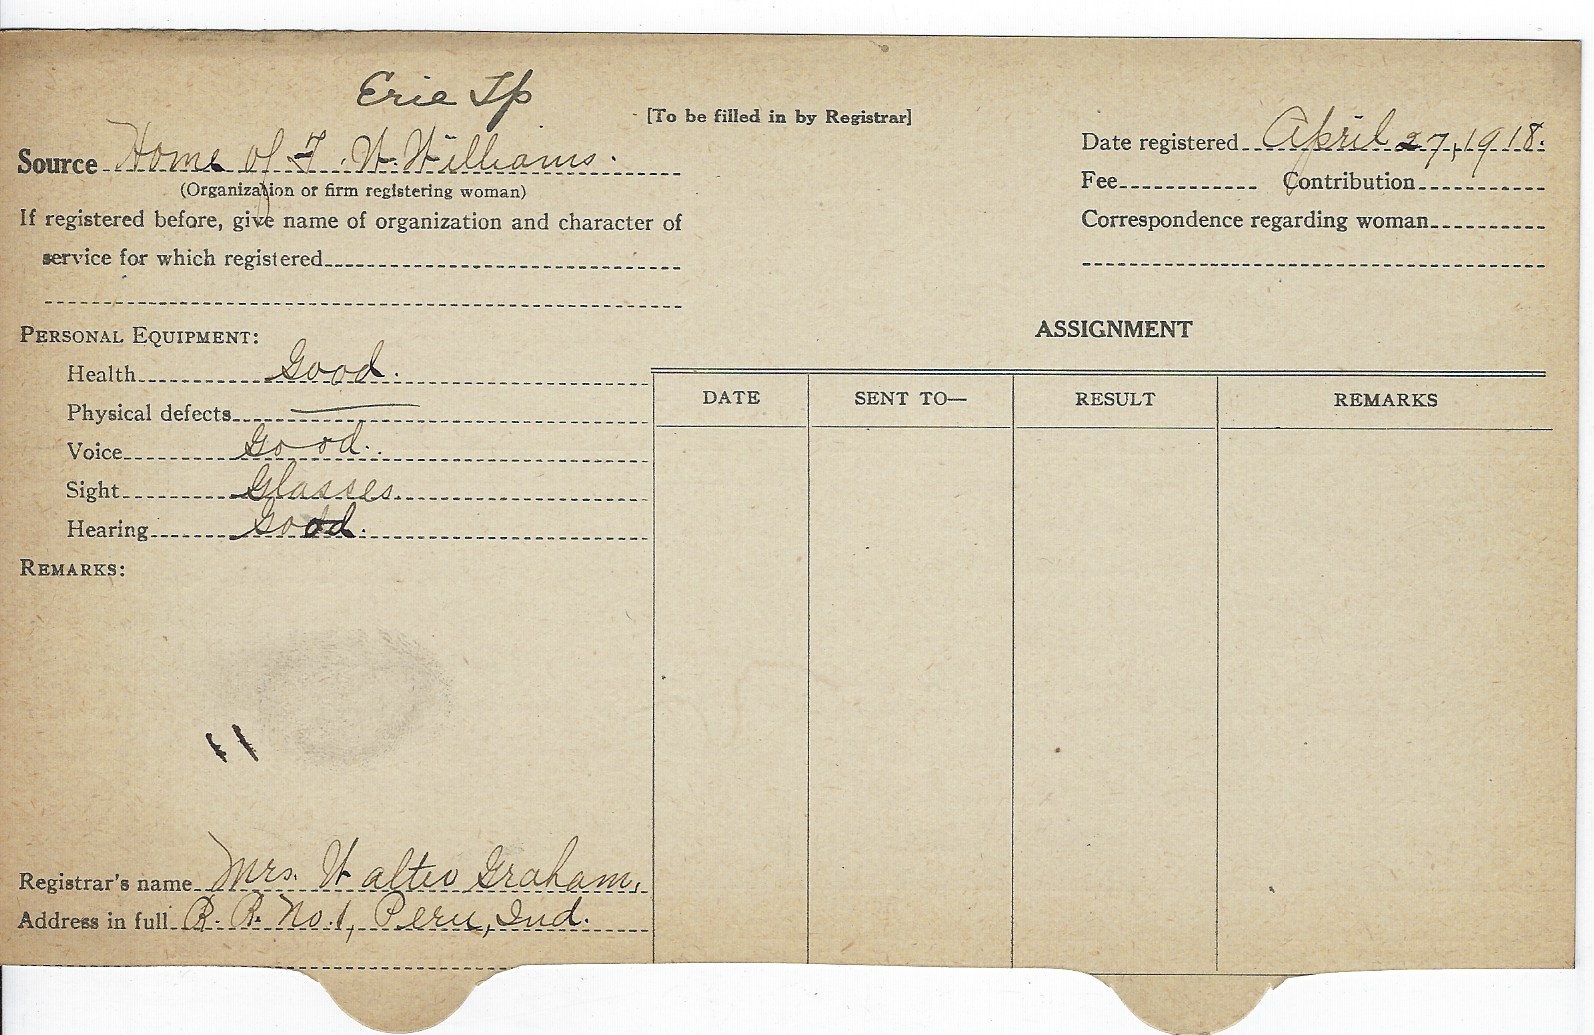 Erie Tp
[To be filled in by Registrar]
Source Home of F. W. Williams.
(Organization or firm registering woman)
If registered before, give name of organization and character of
service for which registered
Date registered April 27, 1918.
Fee Contribution
Correspondence regarding woman
PERSONAL EQUIPMENT:
Health Good.
Physical defects —
Voice Good.
Sight Glasses.
Hearing Good.
REMARKS:
ASSIGNMENT
DATE SENT TO— RESULT REMARKS
Registrar's name Mrs. Walter Graham,
Address in full R. R. No. 1, Peru, Ind.